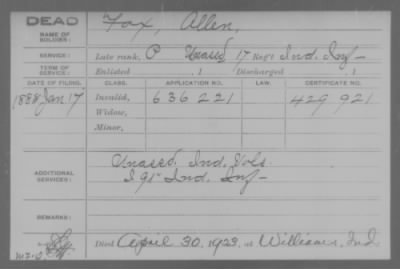 DEAD
NAME OF SOLDIER: Fox, Allen,
SERVICE: Late rank, P Unassd 17 Reg't Ind. Inf—
TERM OF SERVICE: Enlisted , 1 Discharged , 1
DATE OF FILING. CLASS. APPLICATION NO. LAW. CERTIFICATE NO.
1888 Jan 17 Invalid, 636 221 429 921
Widow,
Minor,
ADDITIONAL SERVICES: Unassd. Ind. Vols.
I 91" Ind. Inf—
REMARKS:
Died April 30, 1923, at Williams, Ind